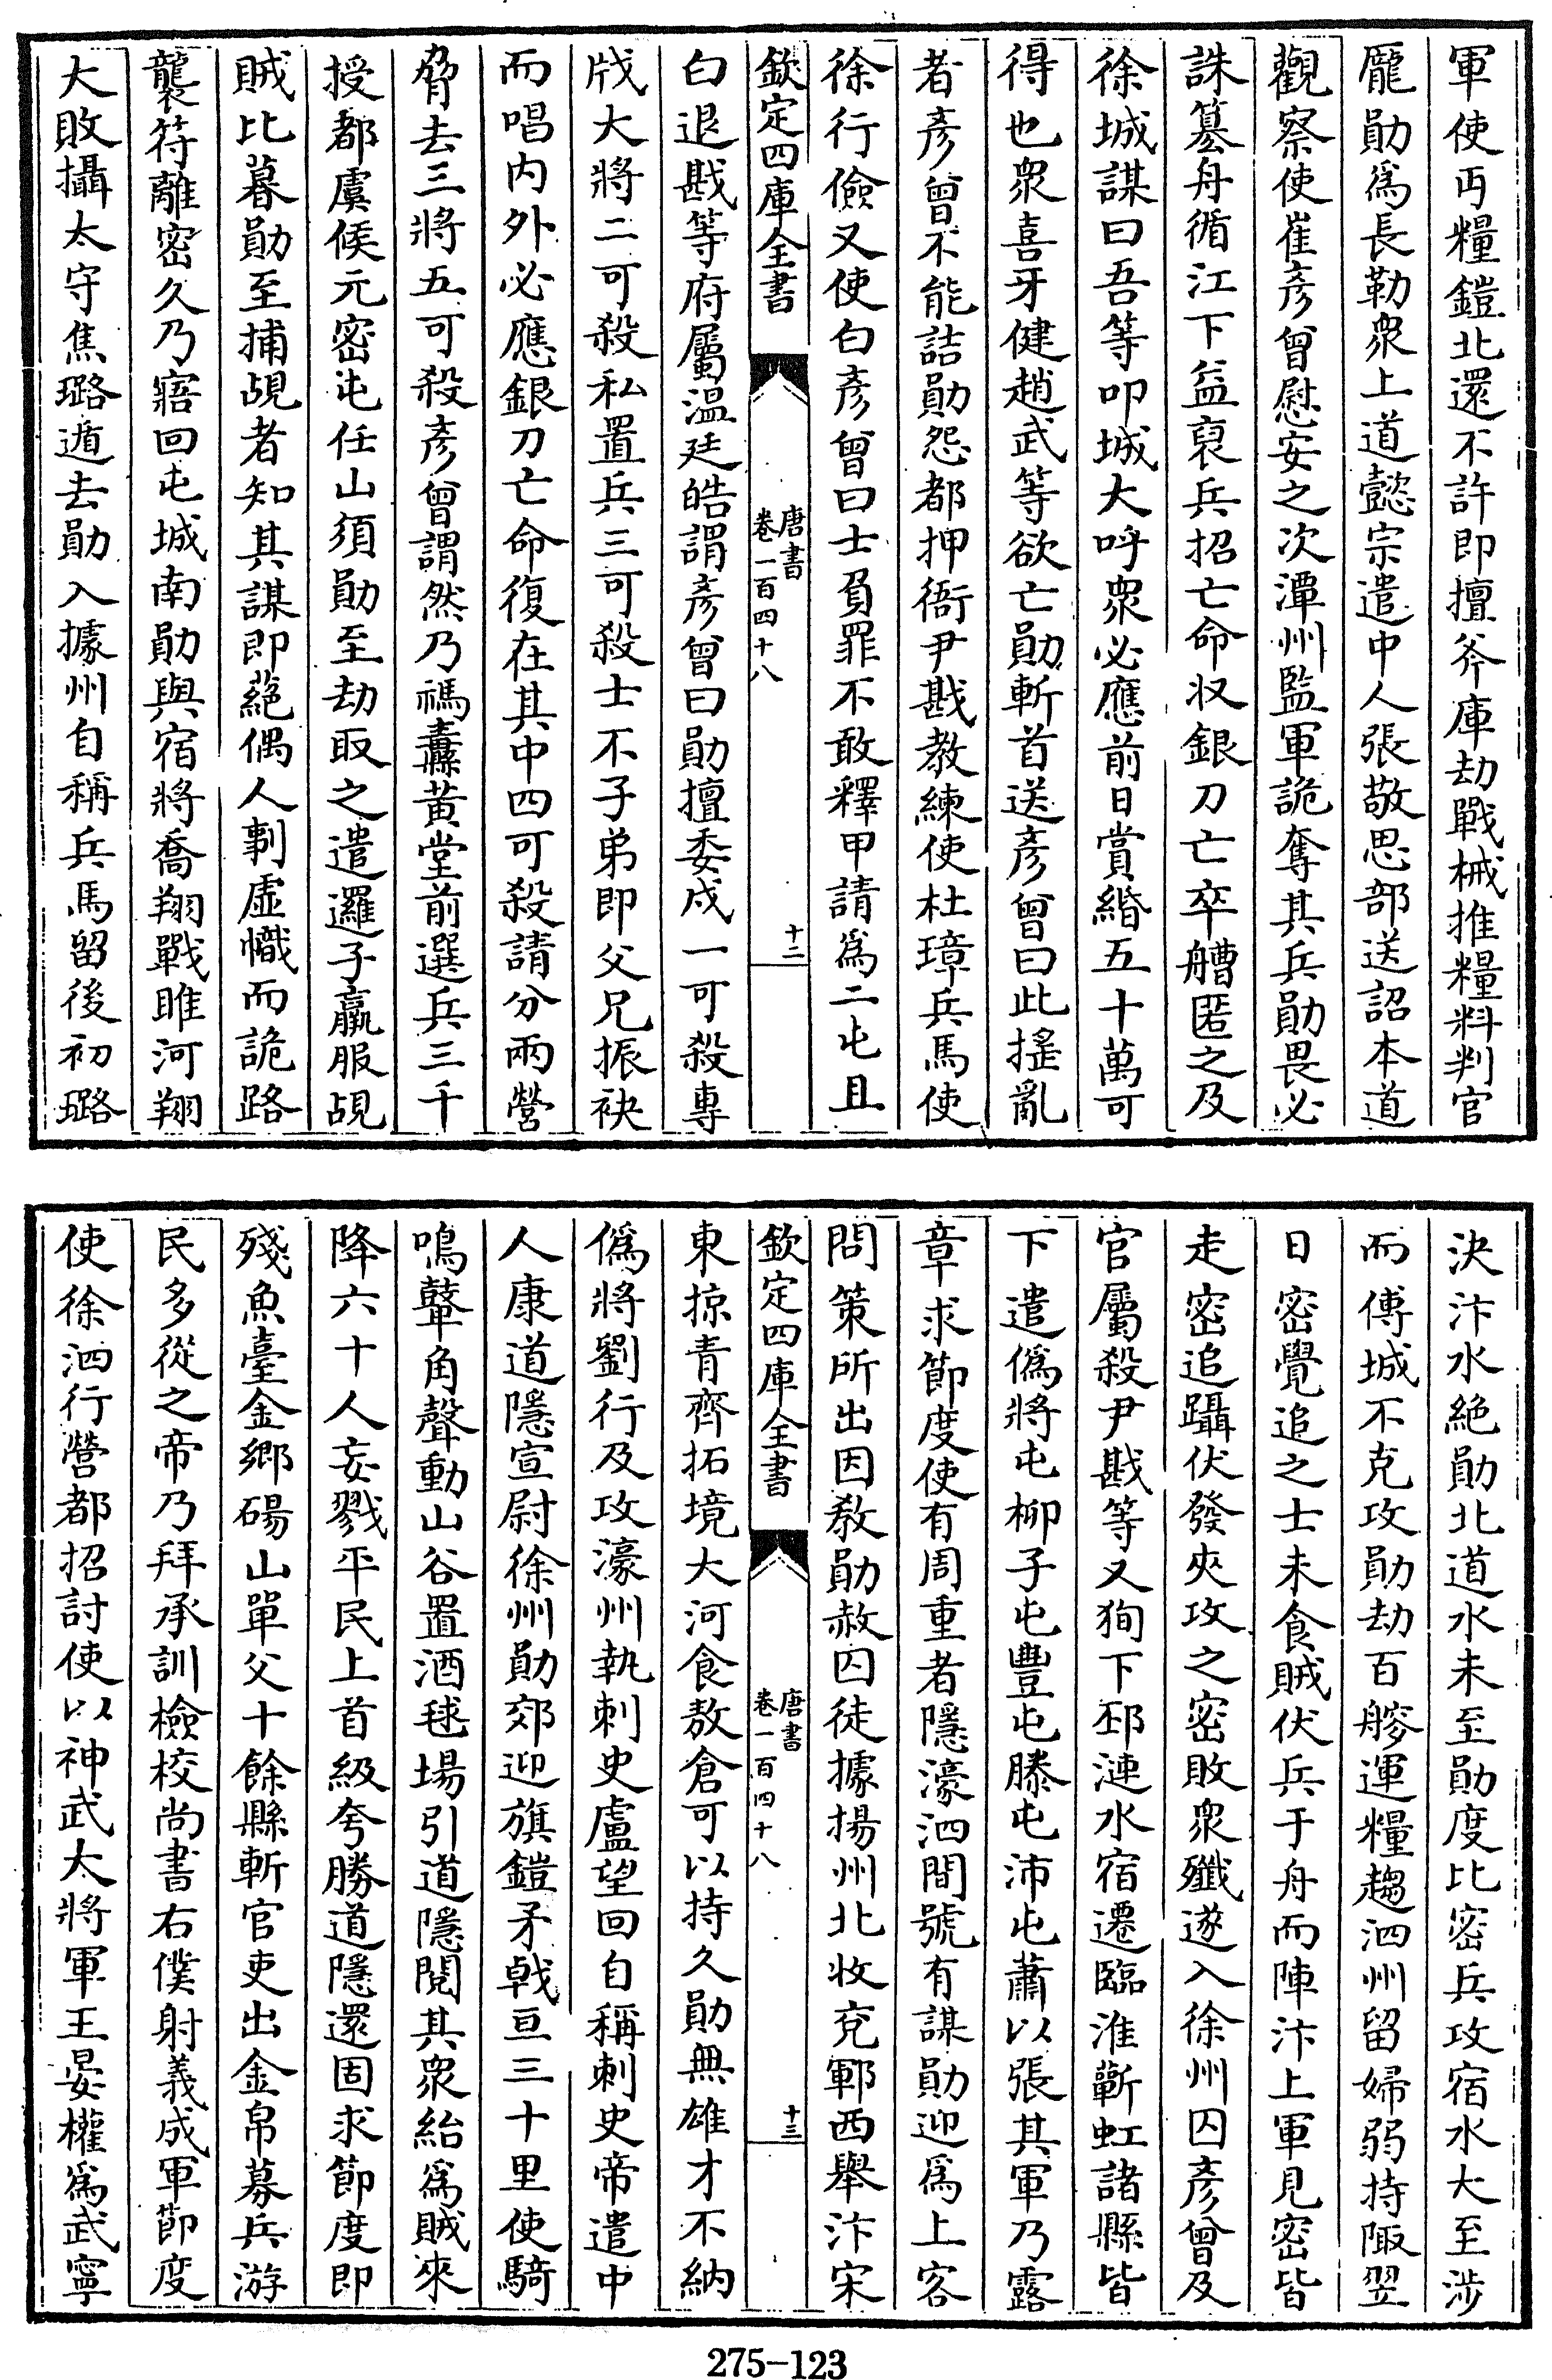 軍使丐糧鎧北還不許即擅斧庫劫戰械推糧料判官
龐勛為長勒衆上道懿宗遣中人張敬思部送詔本道
觀察使崔彥曾慰安之次潭州監軍詭奪其兵勛畏必
誅篡舟循江下益裒兵招亡命收銀刀亡卒艚匿之及
徐城謀曰吾等叩城大呼衆必應前日賞緡五十萬可
得也衆喜牙健趙武等欲亡勛斬首送彥曾曰此搖亂
者彥曾不能詰勛怨都押衙尹戡教練使杜璋兵馬使
徐行儉又使白彥曾曰士負罪不敢釋甲請為二屯且
欽定四庫全書
唐書
卷一百四十八
十二
白退戡等府屬溫廷皓謂彥曾曰勛擅委戍一可殺專
戕大將二可殺私置兵三可殺士不子弟即父兄振袂
而唱内外必應銀刀亡命復在其中四可殺請分兩營
脅去三將五可殺彥曾謂然乃禡纛黃堂前選兵三千
授都虞候元密屯任山須勛至劫取之遣邏子羸服覘
賊比暮勛至捕覘者知其謀即蕝偶人剚虛幟而詭路
襲符離密久乃寤回屯城南勛與宿將喬翔戰睢河翔
大敗攝太守焦璐遁去勛入據州自稱兵馬留後初璐
決汴水絶勛北道水未至勛度比密兵攻宿水大至涉
而傅城不克攻勛劫百艘運糧趨泗州留婦弱持陬翌
日密覺追之士未食賊伏兵于舟而陣汴上軍見密皆
走密追躡伏發夾攻之密敗衆殲遂入徐州囚彥曾及
官屬殺尹戡等又狥下邳漣水宿遷臨淮蘄虹諸縣皆
下遣僞將屯柳子屯豐屯滕屯沛屯蕭以張其軍乃露
章求節度使有周重者隱濠泗間號有謀勛迎為上客
問策所出因教勛赦囚徒據揚州北收兗鄆西舉汴宋
欽定四庫全書
唐書
卷一百四十八
十三
東掠青齊拓境大河食敖倉可以持久勛無雄才不納
僞將劉行及攻濠州執刺史盧望回自稱刺史帝遣中
人康道隱宣尉徐州勛郊迎旗鎧矛戟亘三十里使騎
鳴鼙角聲動山谷置酒毬場引道隱閱其衆紿為賊來
降六十人妄戮平民上首級夸勝道隱還固求節度即
殘魚臺金鄉碭山單父十餘縣斬官吏出金帛募兵游
民多從之帝乃拜承訓檢校尚書右僕射義成軍節度
使徐泗行營都招討使以神武大將軍王晏權為武寧
275-123